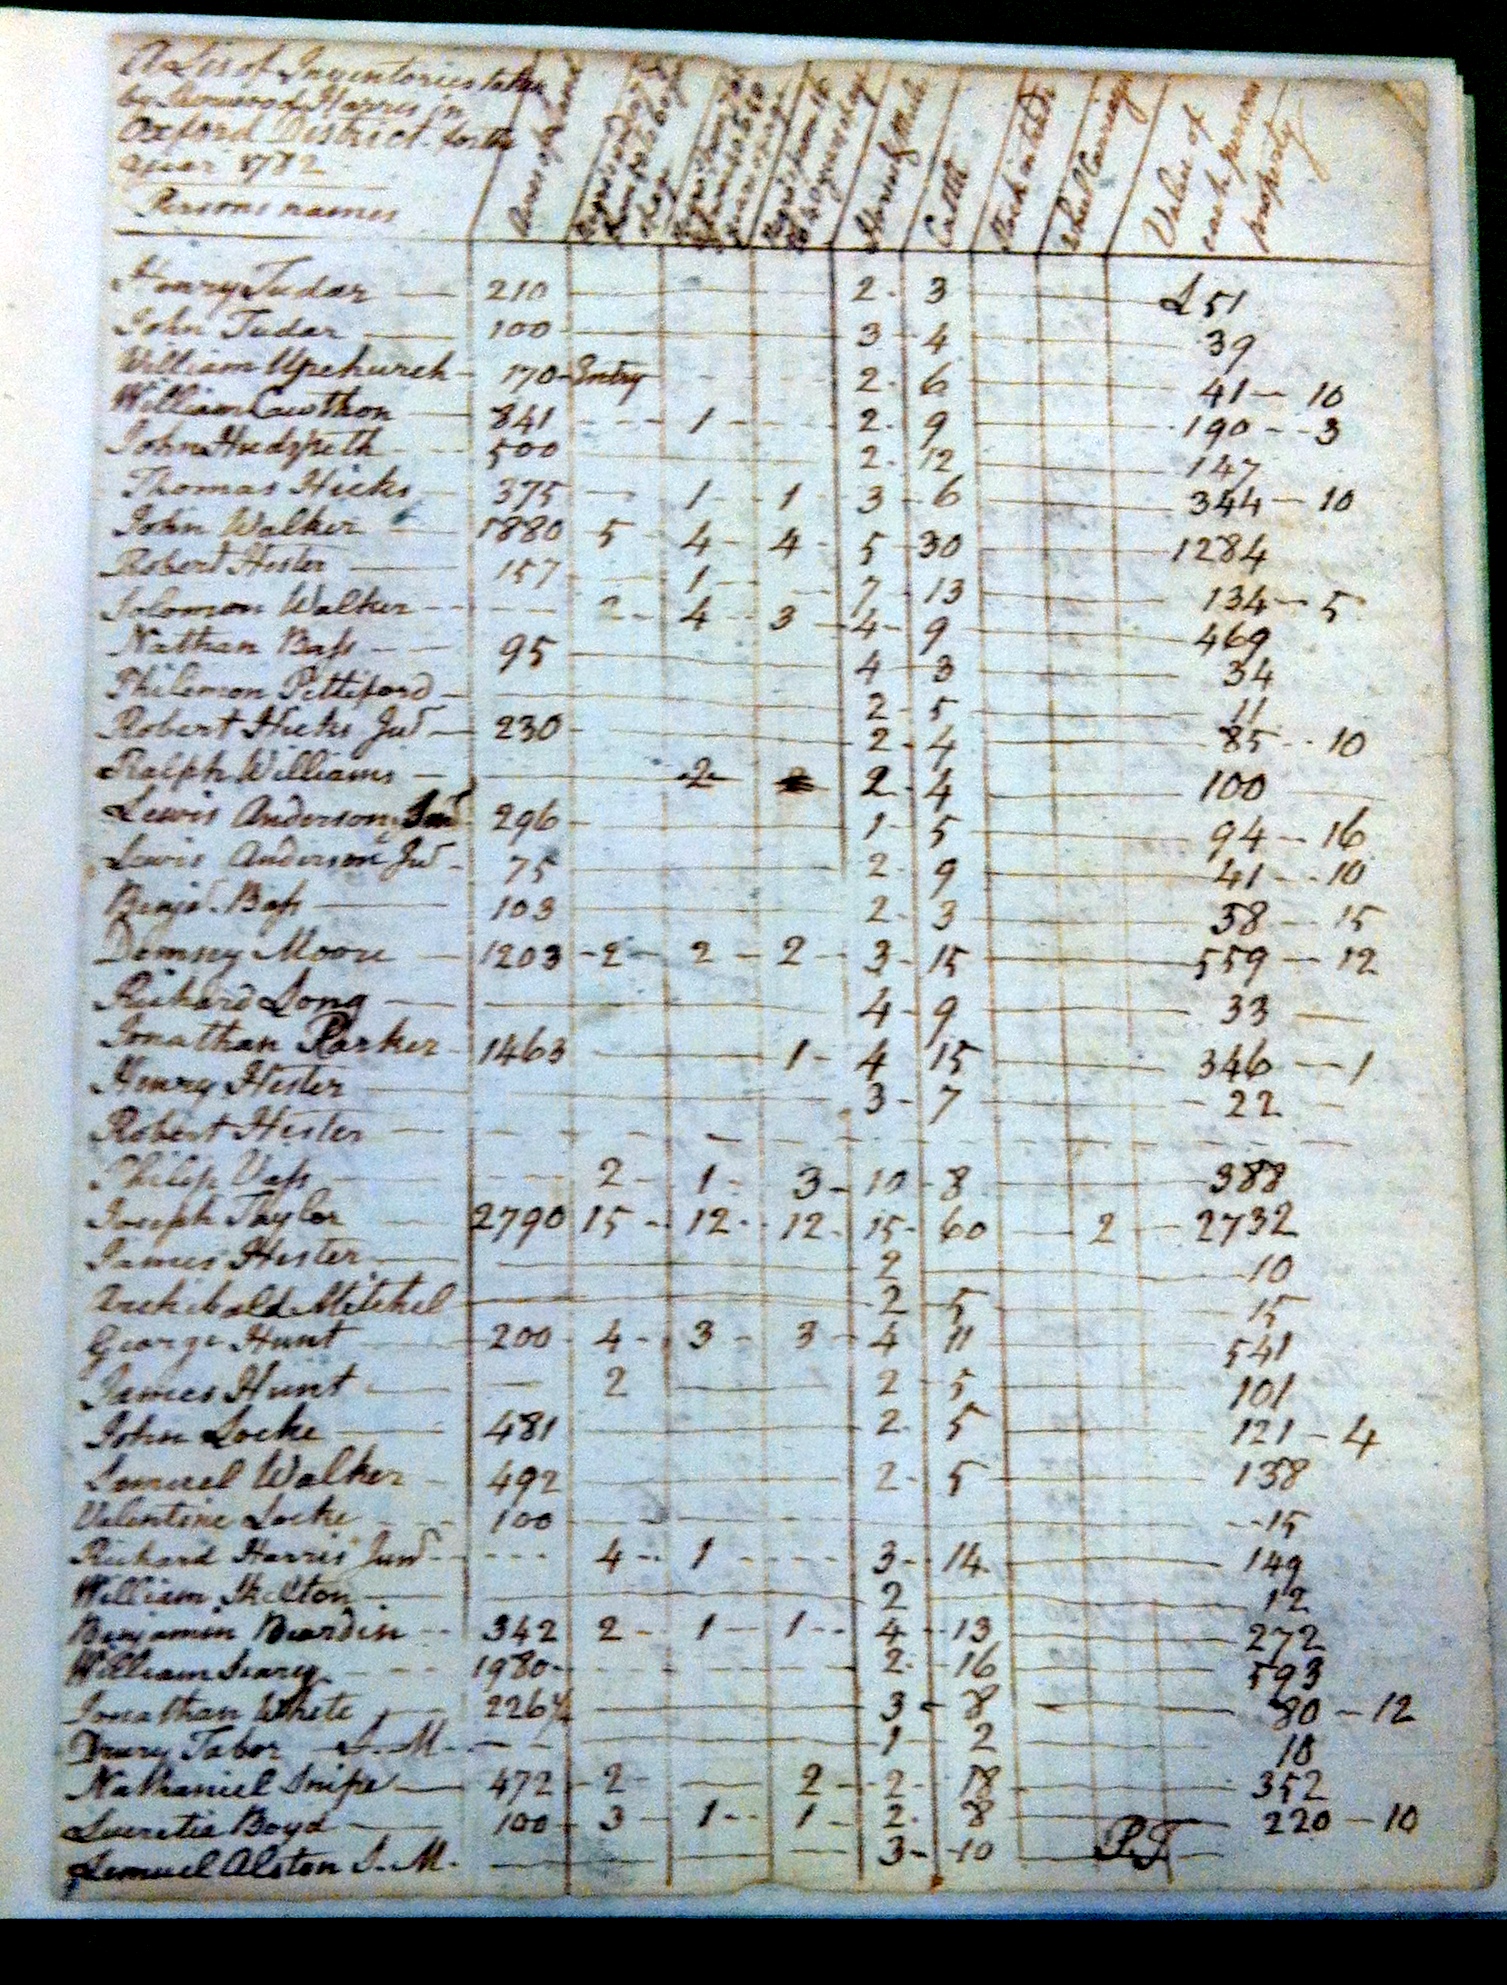 A List of Inventories taken
by Sherwood Harris in
Oxford District for the
year 1782
Persons names
Acres of Land
Horses & Mules
Cattle
Stock in trade
Wheel Carriage
Value of each persons property
Henry Tudar — 210 — 2 - 3 — £51
John Tudar — 100 — 3 - 4 — 39
William Upchurch - 170 - Entry - - 2 - 6 — 41 — 10
William Cawthon — 841 - - - 1 - - 2 - 9 — 190 - - 3
John Hedspeth - 500 — 2 - 12 — 147
Thomas Hicks 375 — 1 - 1 - 3 - 6 — 344 — 10
John Walker — 1880 5 - 4 - 4 - 5 - 30 — 1284
Robert Hester — 157 - - 1 - - 7 - 13 — 134 — 5
Solomon Walker - - - 2 - 4 - 3 - 4 - 9 — 469
Nathan Bass - - 95 — 4 - 3 — 34
Philemon Pettiford — 2 - 5 — 11
Robert Hicks Jur — 230 — 2 - 4 — 85 - - 10
Ralph Williams — 2 - 2 - 4 — 100
Lewis Anderson Senr 296 — 1 - 5 — 94 — 16
Lewis Anderson Jur - 75 — 2 - 9 — 41 - - 10
Benja. Bass — 103 — 2 - 3 — 58 — 15
Demsey Moore — 1203 - 2 - 2 - 2 - 3 - 15 — 559 — 12
Richard Long — 4 - 9 — 33 —
Jonathan Parker 1463 — 1 - 4 15 — 346 — 1
Henry Hester — 3 - 7 — 22 —
Robert Hester — - - - - -
Philip Vass - - - 2 - 1 - 3 - 10 - 8 — 388
Joseph Taylor — 2790 15 - 12 - 12 - 15 - 60 — 2 — 2732
James Hester — 2 — 10
Archibald Mitchel — 2 - 5 — 15
George Hunt — 200 - 4 - 3 - 3 - 4 11 — 541
James Hunt — 2 — 2 - 5 — 101
John Locke — 481 — 2 - 5 — 121 - 4
Samuel Walker - 492 — 2 - 5 — 138
Valentine Locke - 100 — 15
Richard Harris Junr - - - 4 - - 1 - - - 3 - 14 — 149
William Skelton — 2 — 12
Benjamin Beardin - - 342 2 - 1 - 1 - 4 - 13 — 272
William Searcy - - 1980 - - - - 2 - 16 — 593
Jonathan White 226½ — 3 - 8 — 80 - 12
Drury Tabor — S. M. - — 1 - 2 — 10
Nathaniel Snipe — 472 - 2 - — 2 - 2 - 18 — 352
Lucretia Boyd — 100 - 3 - 1 - - 1 - 2 - 8 — 220 — 10
Lemuel Alston S. M. — 3 - 10 — P.T —